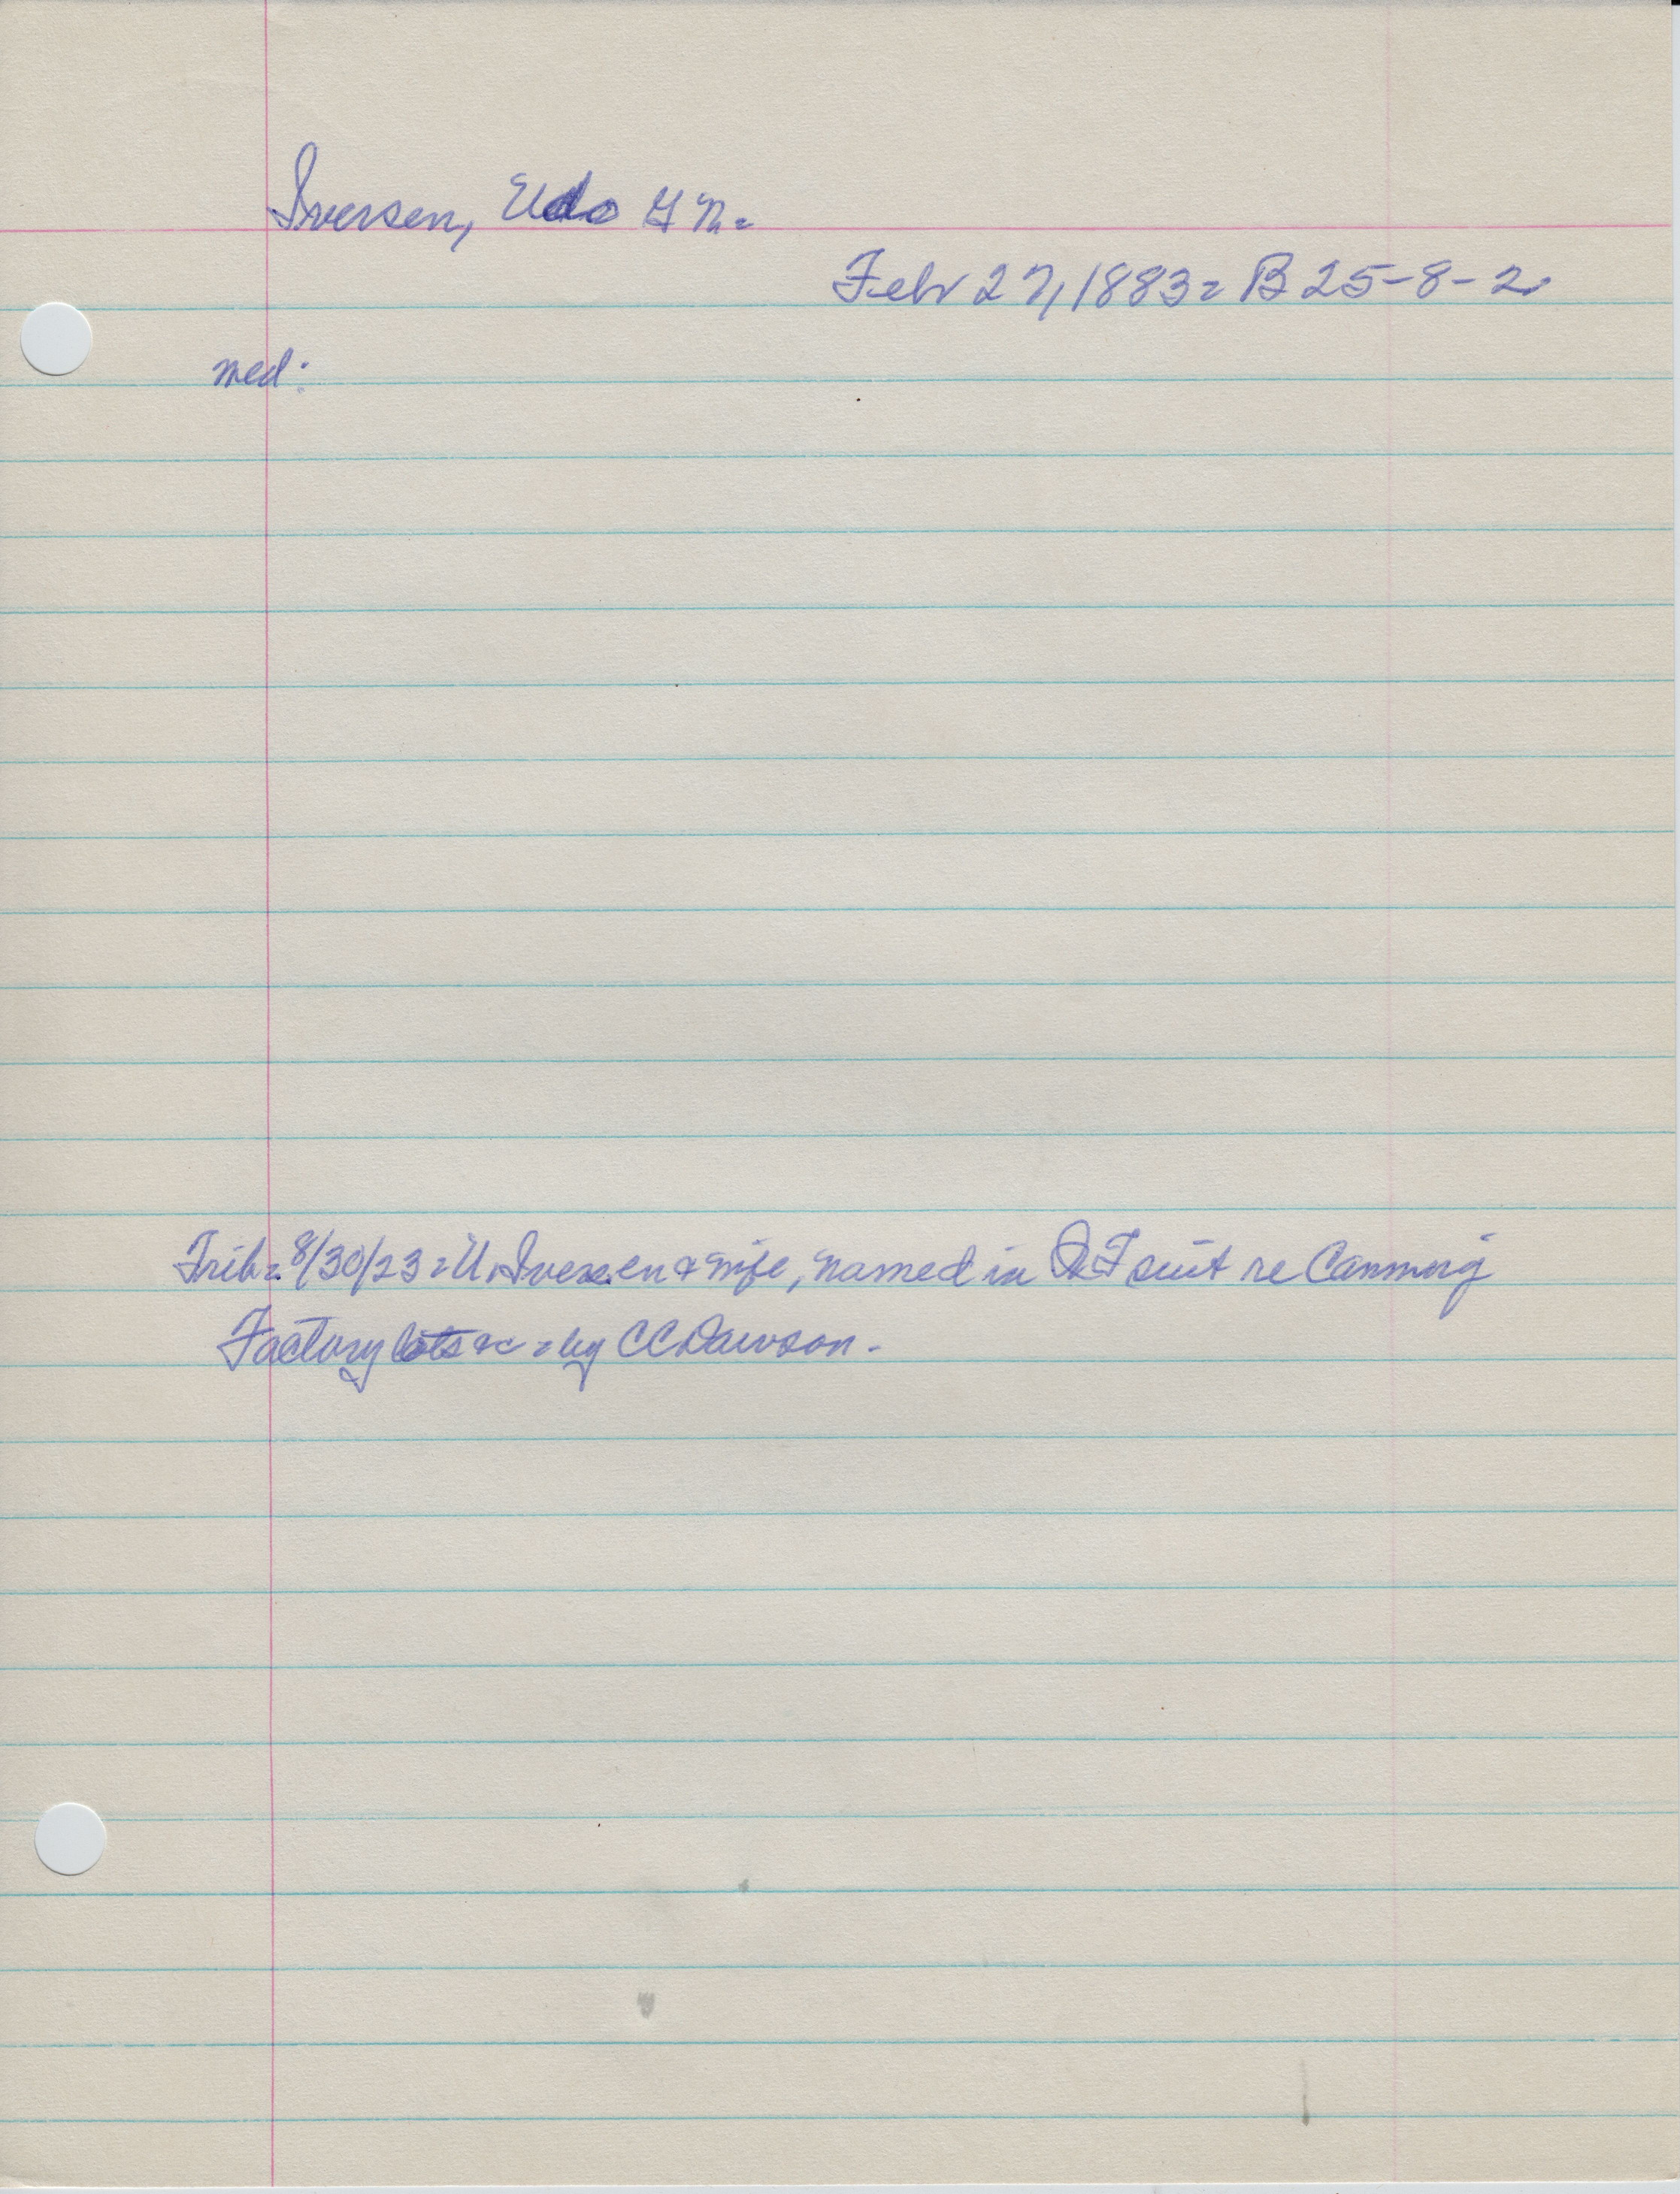 Iversen, Udo G N =
Febr 27, 1883 = B 25-8-2
med:
Trib = 8/30/23 = U. Iversen & wife, named in QT suit re Canning
Factory lots &c = by CC Dawson.